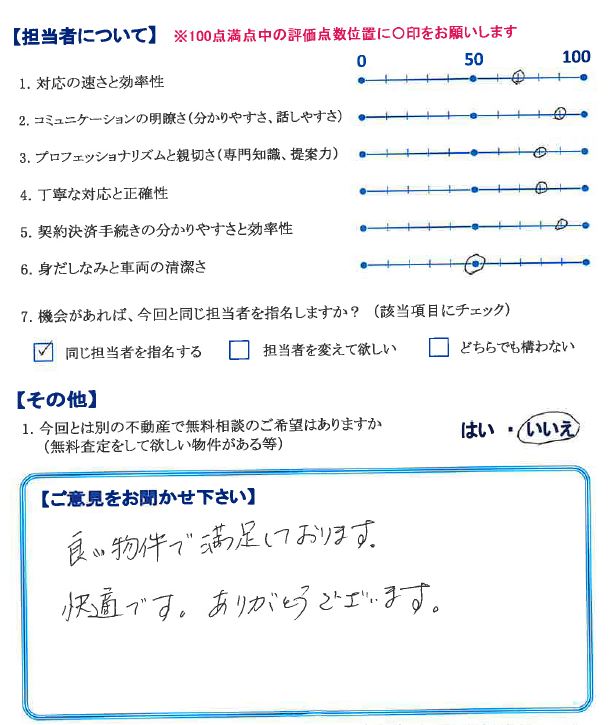 【担当者について】 ※100点満点中の評価点数位置に〇印をお願いします
0 50 100
1. 対応の速さと効率性
2. コミュニケーションの明瞭さ(分かりやすさ、話しやすさ)
3. プロフェッショナリズムと親切さ(専門知識、提案力)
4. 丁寧な対応と正確性
5. 契約決済手続きの分かりやすさと効率性
6. 身だしなみと車両の清潔さ
7. 機会があれば、今回と同じ担当者を指名しますか? (該当項目にチェック)
同じ担当者を指名する 担当者を変えて欲しい どちらでも構わない
【その他】
1. 今回とは別の不動産で無料相談のご希望はありますか
(無料査定をして欲しい物件がある等)
はい ・ いいえ
【ご意見をお聞かせ下さい】
良い物件で満足しております。
快適です。ありがとうございます。